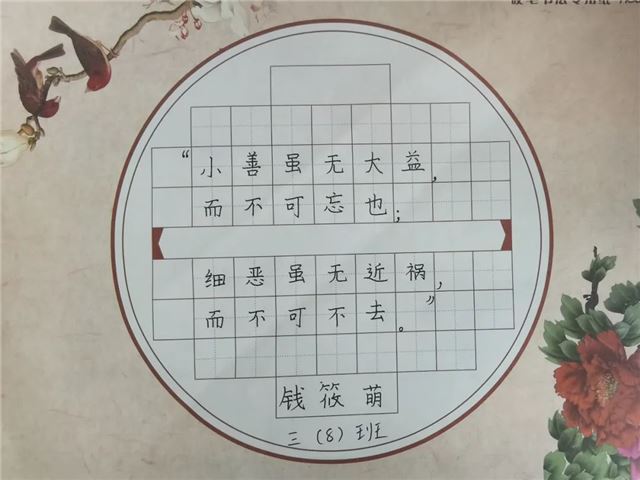 “小善虽无大益，
而不可忘也；
细恶虽无近祸，
而不可不去。”
钱筱萌
三（8）班